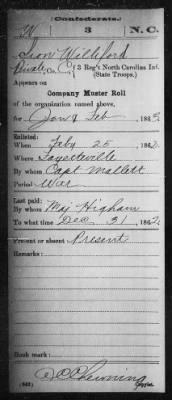 Confederate.
W 3 N.C.
Sion Williford
Private, Co. C, 3 Reg't North Carolina Inf.
(State Troops.)
Appears on
Company Muster Roll
of the organization named above,
for Jan & Feb, 186
Enlisted:
When Feby 25, 186
Where Fayetteville
By whom Capt Mallett
Period War
Last paid:
By whom Maj Higham
To what time Dec 31, 186
Present or absent Present
Remarks:
Book mark:
(642) Copyist.